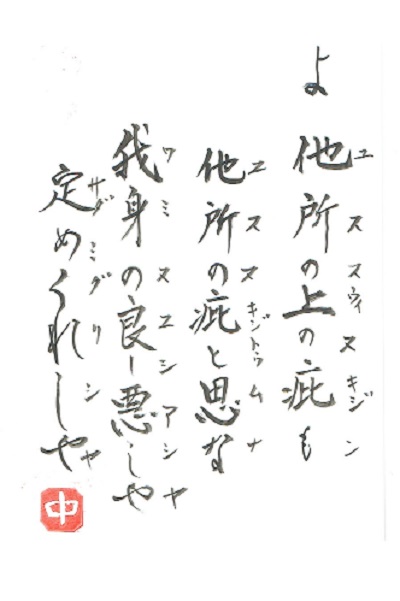 よ 他所の上の疵も
ユスヌウィヌキジン
他所の疵と思な
ユスヌキジトゥウムナ
我身の良し悪しや
ワミヌユシアシヤ
定めぐれしや
サダミグリシヤ
中